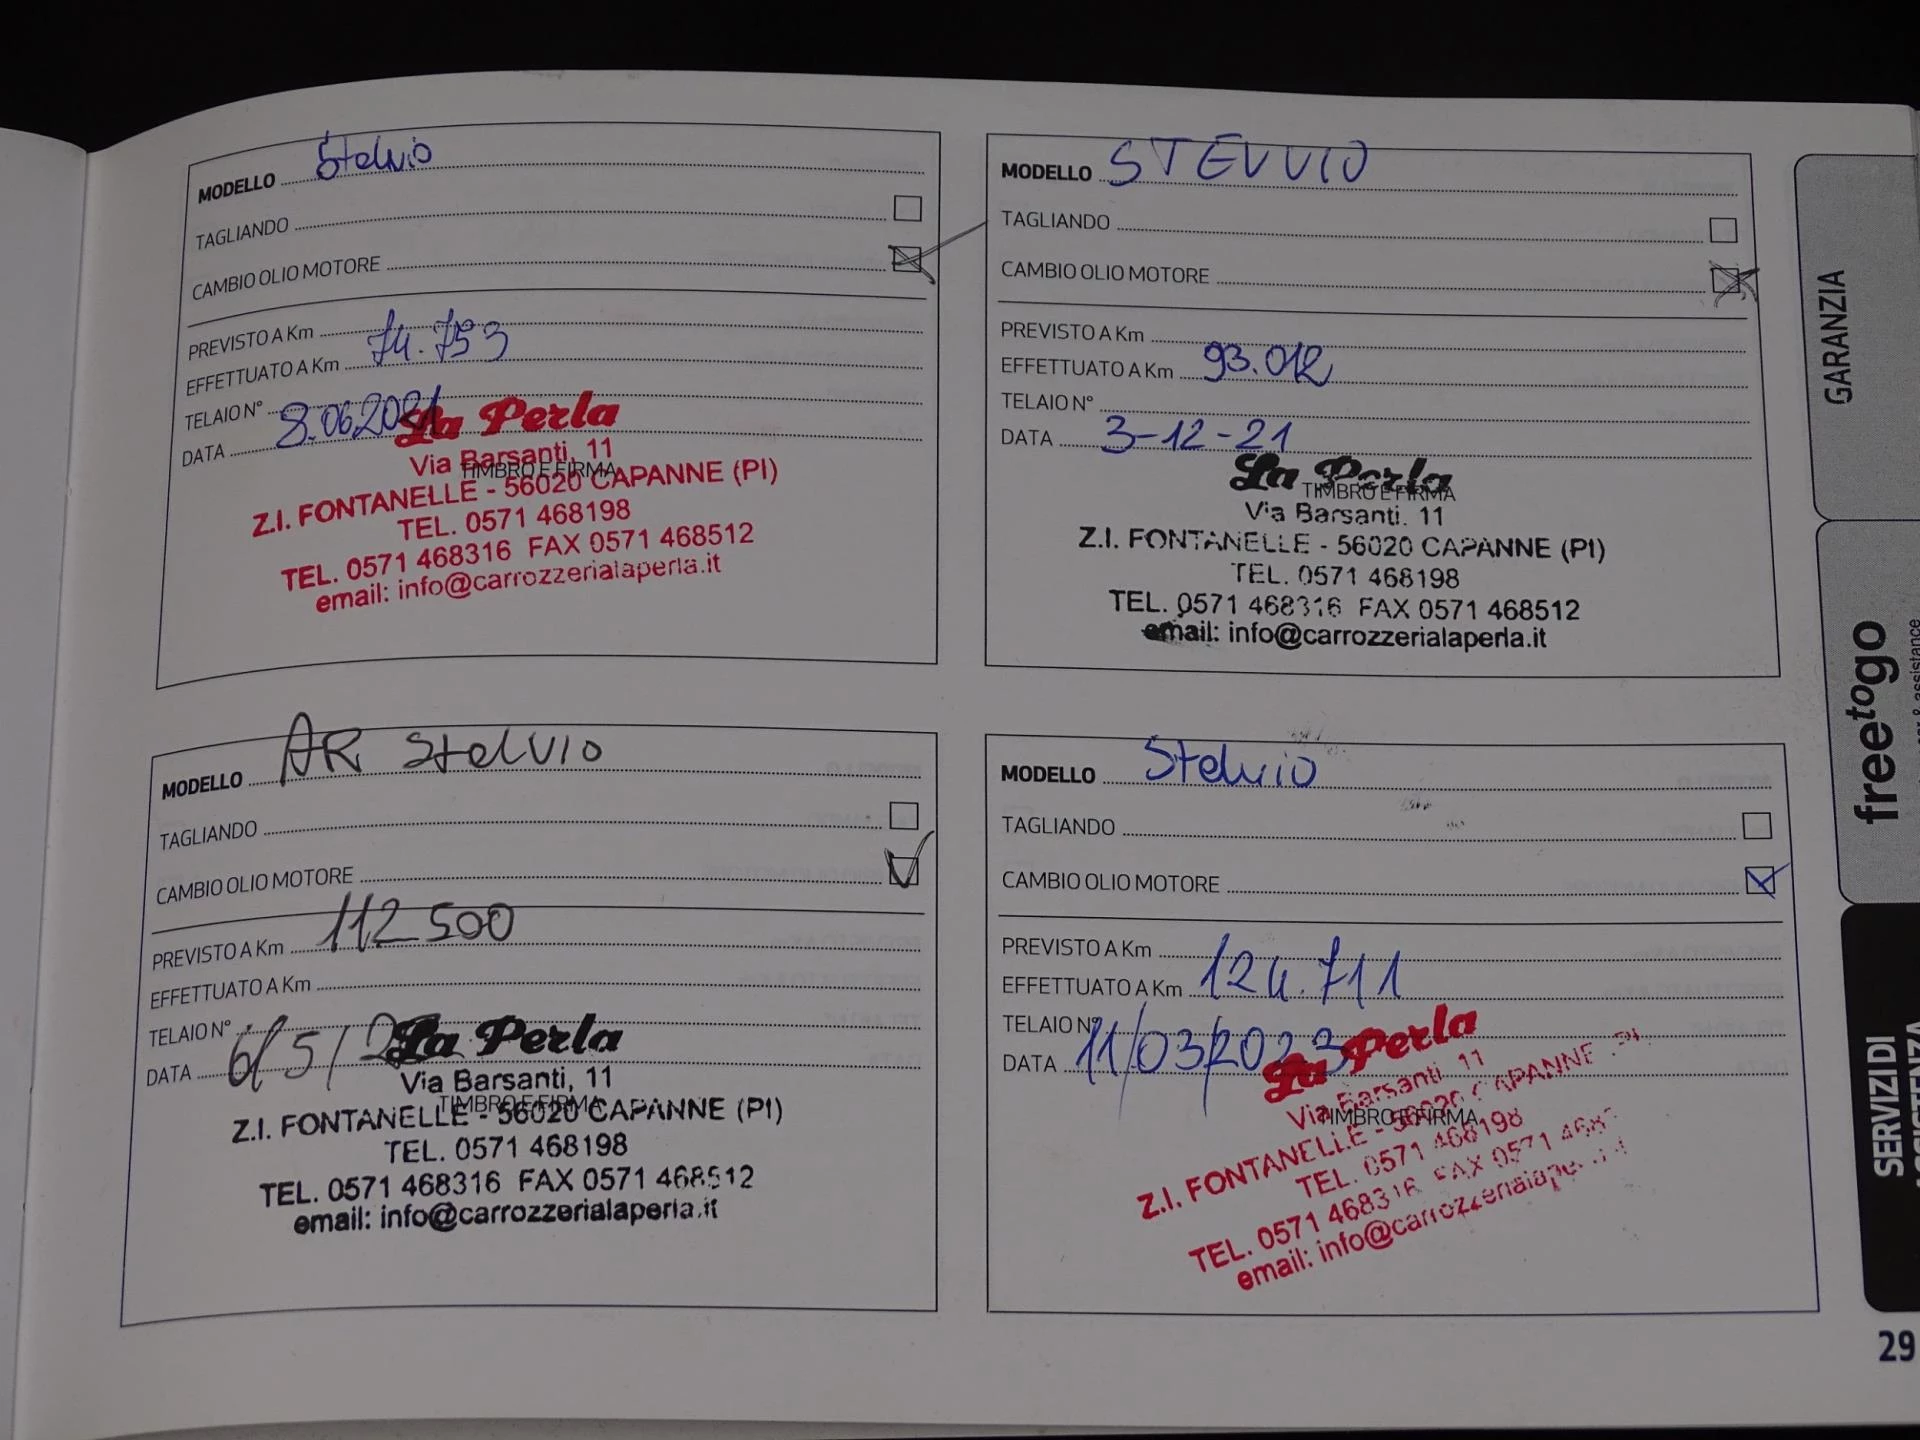 MODELLO Stelvio
TAGLIANDO
CAMBIO OLIO MOTORE
PREVISTO A Km
EFFETTUATO A Km 74.753
TELAIO N°
DATA 8.06.2021
La Perla
Via Barsanti, 11
TIMBRO E FIRMA
Z.I. FONTANELLE - 56020 CAPANNE (PI)
TEL. 0571 468198
TEL. 0571 468316 FAX 0571 468512
email: info@carrozzerialaperla.it
MODELLO STEVVIO
TAGLIANDO
CAMBIO OLIO MOTORE
PREVISTO A Km
EFFETTUATO A Km 93.012
TELAIO N°
DATA 3-12-21
La Perla
TIMBRO E FIRMA
Via Barsanti. 11
Z.I. FONTANELLE - 56020 CAPANNE (PI)
TEL. 0571 468198
TEL. 0571 468316 FAX 0571 468512
email: info@carrozzerialaperla.it
MODELLO AR Stelvio
TAGLIANDO
CAMBIO OLIO MOTORE
PREVISTO A Km 112500
EFFETTUATO A Km
TELAIO N°
DATA 6/5/
La Perla
Via Barsanti, 11
TIMBRO E FIRMA
Z.I. FONTANELLE - 56020 CAPANNE (PI)
TEL. 0571 468198
TEL. 0571 468316 FAX 0571 468512
email: info@carrozzerialaperla.it
MODELLO Stelvio
TAGLIANDO
CAMBIO OLIO MOTORE
PREVISTO A Km
EFFETTUATO A Km 124.711
TELAIO N°
DATA 11/03/2023
La Perla
Via Barsanti, 11
TIMBRO E FIRMA
Z.I. FONTANELLE - 56020 CAPANNE
TEL. 0571 468198
TEL. 0571 468316 FAX 0571
email: info@carrozzerialaperla.it
GARANZIA
freetogo
& assistance
SERVIZI DI
ASSISTENZA
29